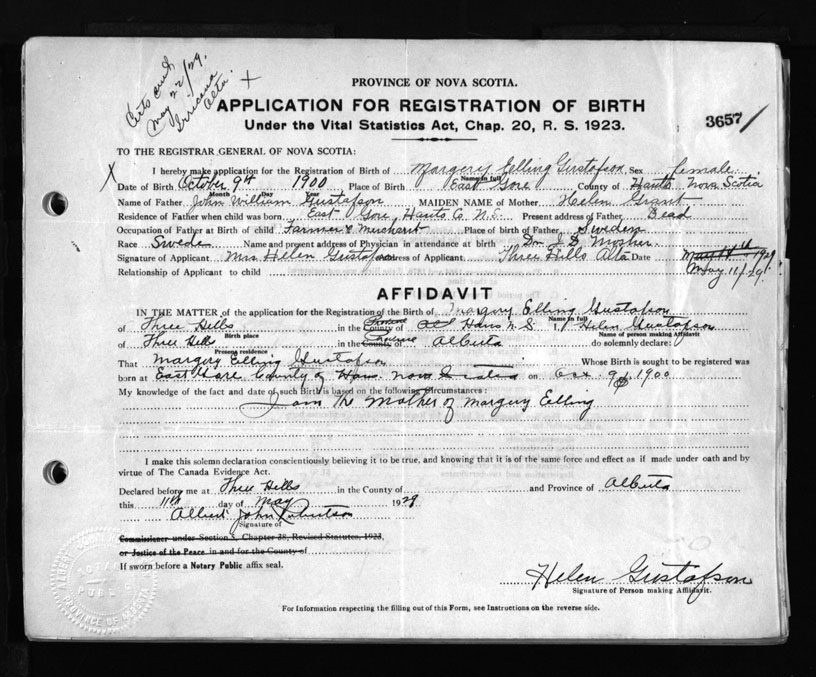 Certs out
May 22/29.
Irricana
Alta.
PROVINCE OF NOVA SCOTIA.
APPLICATION FOR REGISTRATION OF BIRTH
Under the Vital Statistics Act, Chap. 20, R. S. 1923.
3657
TO THE REGISTRAR GENERAL OF NOVA SCOTIA:
I hereby make application for the Registration of Birth of Margery Elling Gustafson Sex female
Name in full
Date of Birth October 9th 1900 Place of Birth East Gore County of Hants Nova Scotia
Month Day Year
Name of Father John William Gustafson MAIDEN NAME of Mother Helen Grant
Residence of Father when child was born East Gore, Hants Co N.S. Present address of Father Dead
Occupation of Father at Birth of child Farmer & Merchant Place of birth of Father Sweden
Race Swede Name and present address of Physician in attendance at birth Dr. J. D. Mosher
Signature of Applicant Mrs Helen Gustafson Address of Applicant Three Hills Alta Date May 11th 1929
Relationship of Applicant to child May 11/29.
AFFIDAVIT
IN THE MATTER of the application for the Registration of the Birth of Margery Elling Gustafson
Name in full
of Three Hills in the County of Province Hans N.S. I, Helen Gustafson
Birth place Name of person making Affidavit
of Three Hills in the County of Province Alberta do solemnly declare:
Present residence
That Margery Elling Gustafson Whose Birth is sought to be registered was
born at East Gore County of Hans. Nova Scotia on Oct. 9th 1900
My knowledge of the fact and date of such Birth is based on the following Circumstances:
I am The Mother of Margery Elling
I make this solemn declaration conscientiously believing it to be true, and knowing that it is of the same force and effect as if made under oath and by
virtue of The Canada Evidence Act.
Declared before me at Three Hills in the County of and Province of Alberta
this 11th day of May 1929
Albert John
Signature of
Commissioner under Section 5, Chapter 38, Revised Statutes, 1923,
or Justice of the Peace in and for the County of
If sworn before a Notary Public affix seal.
Helen Gustafson
Signature of Person making Affidavit.
For Information respecting the filling out of this Form, see Instructions on the reverse side.